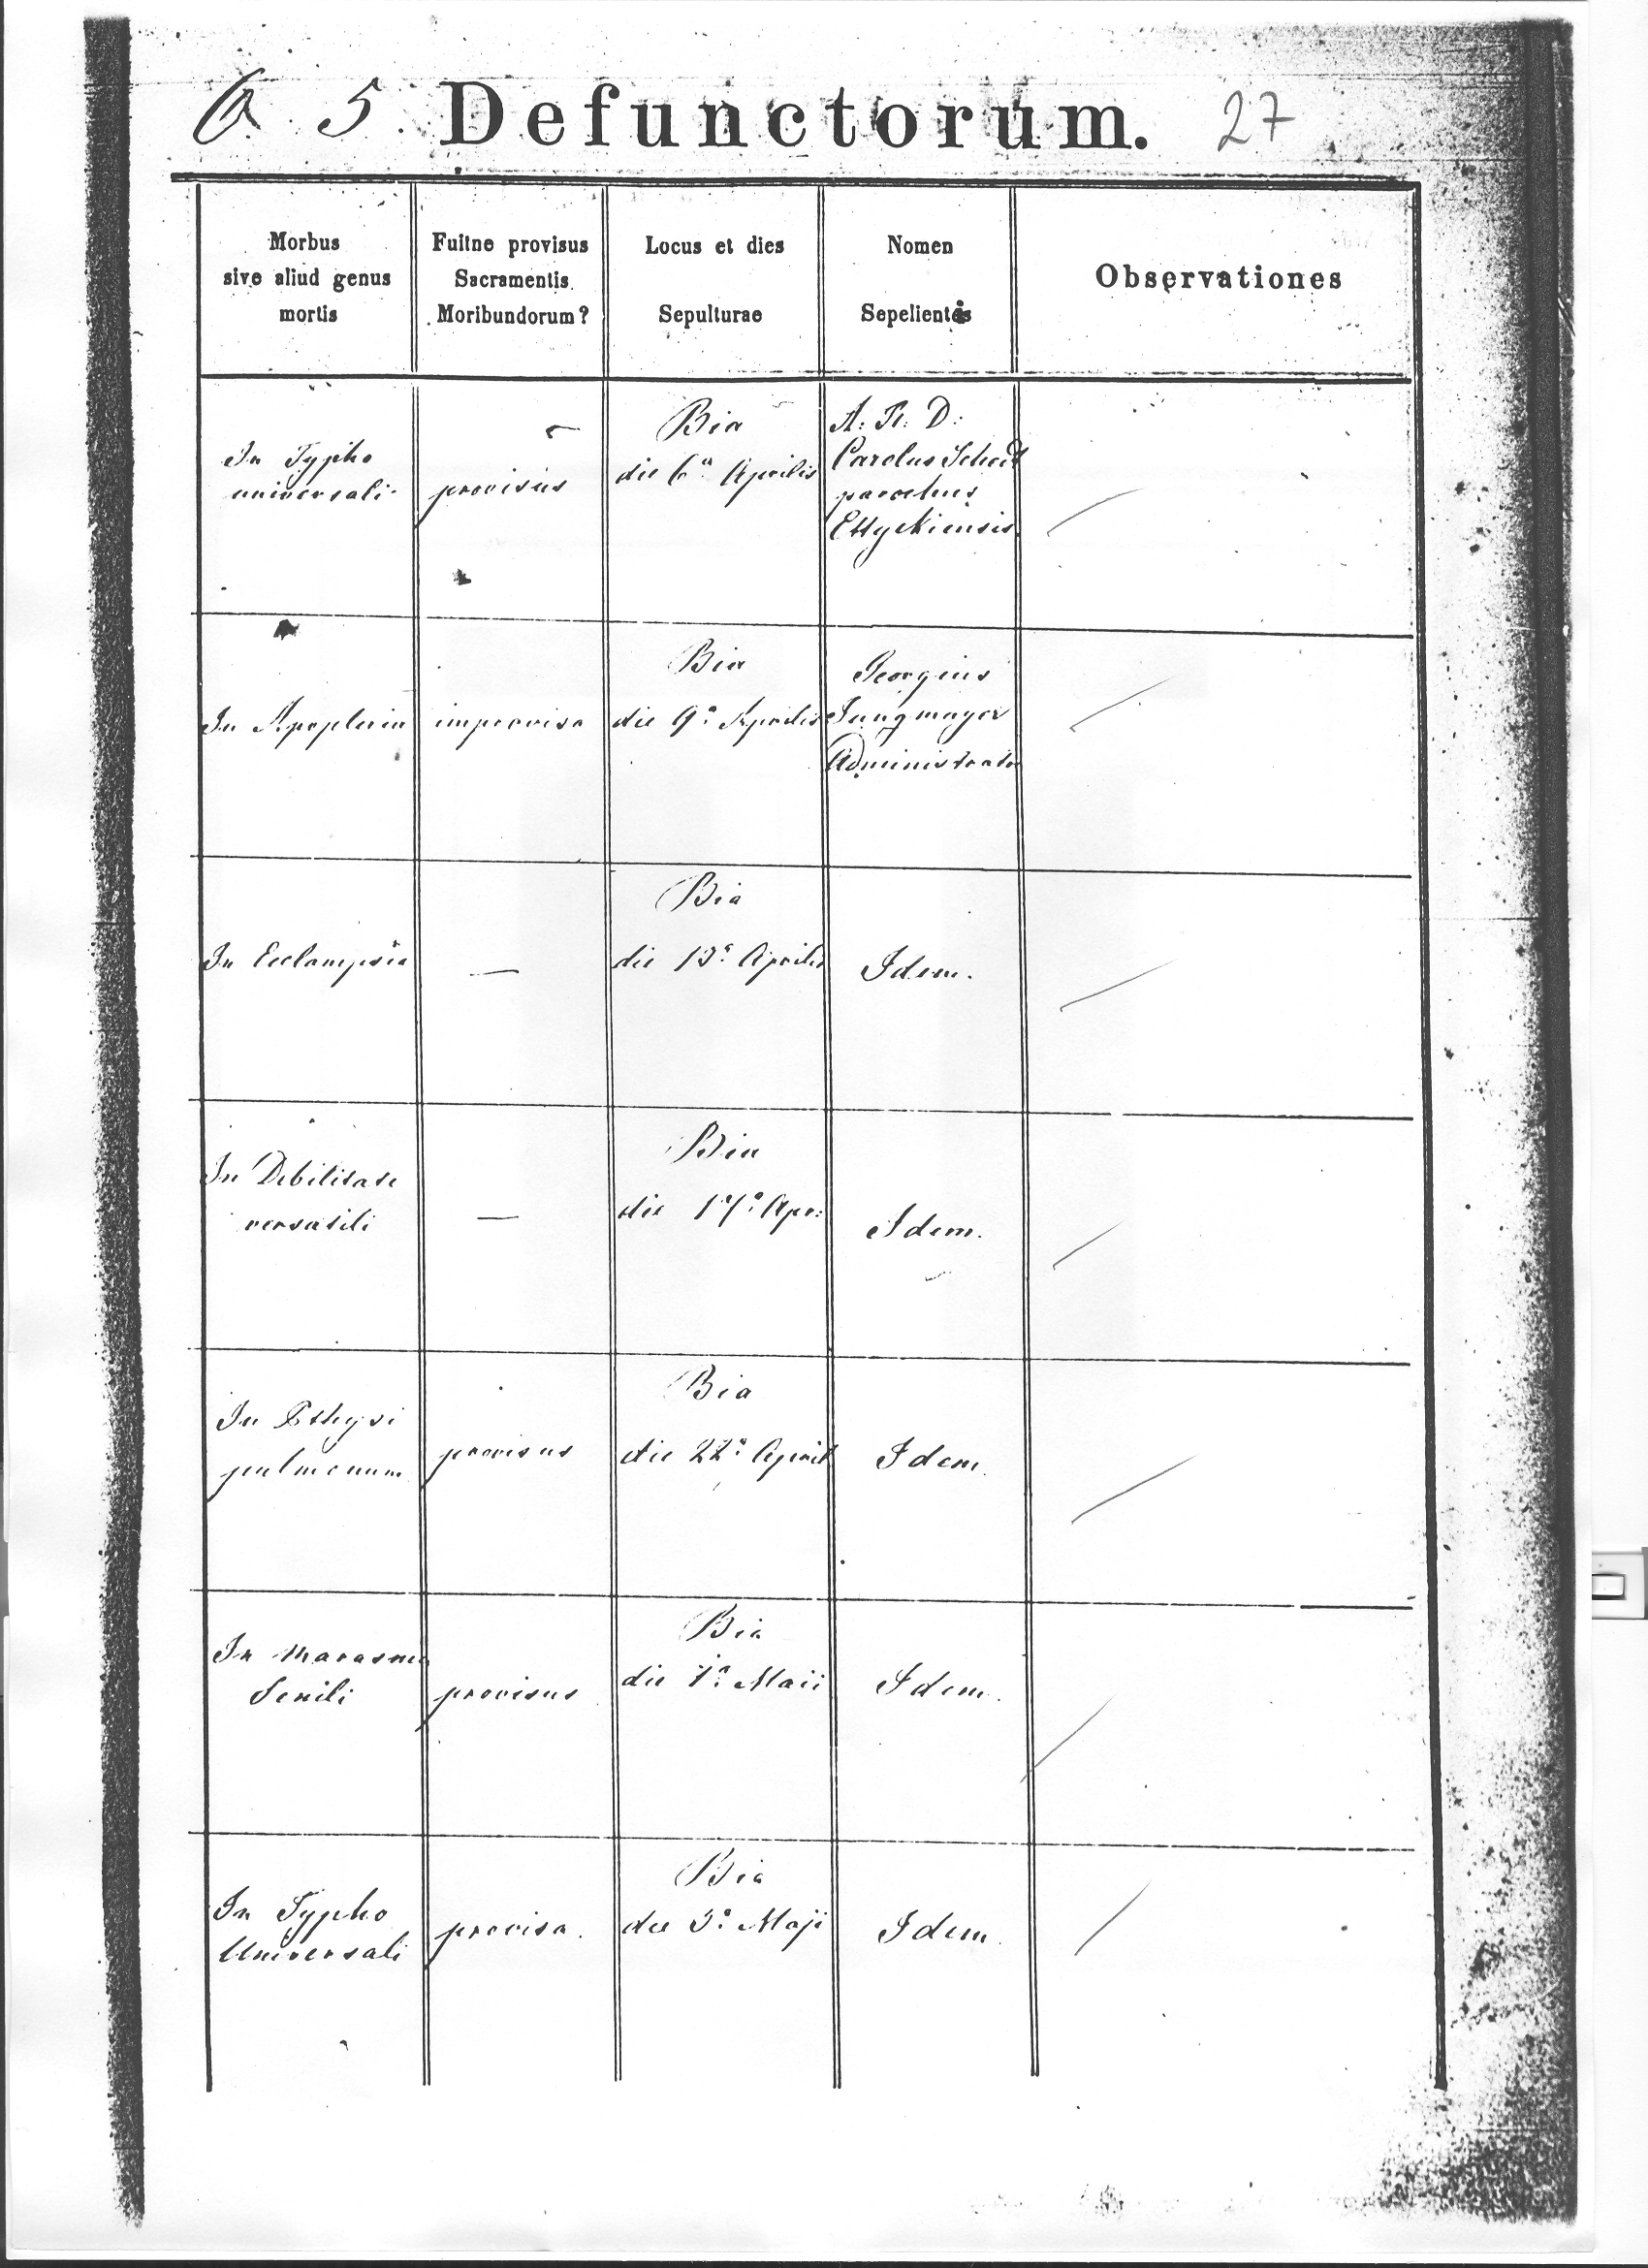 5. Defunctorum. 27
Morbus
sive aliud genus
mortis
Fuitne provisus
Sacramentis
Moribundorum?
Locus et dies
Sepulturae
Nomen
Sepelientis
Observationes
In Typho
universali
provisus
Bia
die 6a Aprilis
A. R. D:
Carolus
parochus
Ettyekiensis
In Apoplexia
improvisa
Bia
die 9a Aprilis
Georgius
Jungmayer
Administrator
In Ecclampsia
—
Bia
die 13a Aprilis
Idem.
In Debilitate
—
Bia
die 17a Apr:
Idem.
In Pthysi
pulmonum
provisus
Bia
die 22a April
Idem.
In Marasmo
Senili
provisus
Bia
die 1a Maii
Idem.
In Typho
Universali
provisa.
Bia
die 3a Maji
Idem.